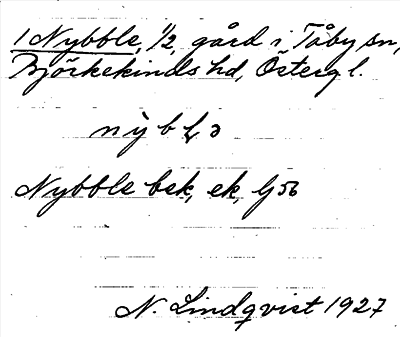 1 Nybble, 1/2, gård i Tåby sn,
Björkekinds hd, Östergl.
Nybble bek, ek, Gjö
N. Lindqvist 1927